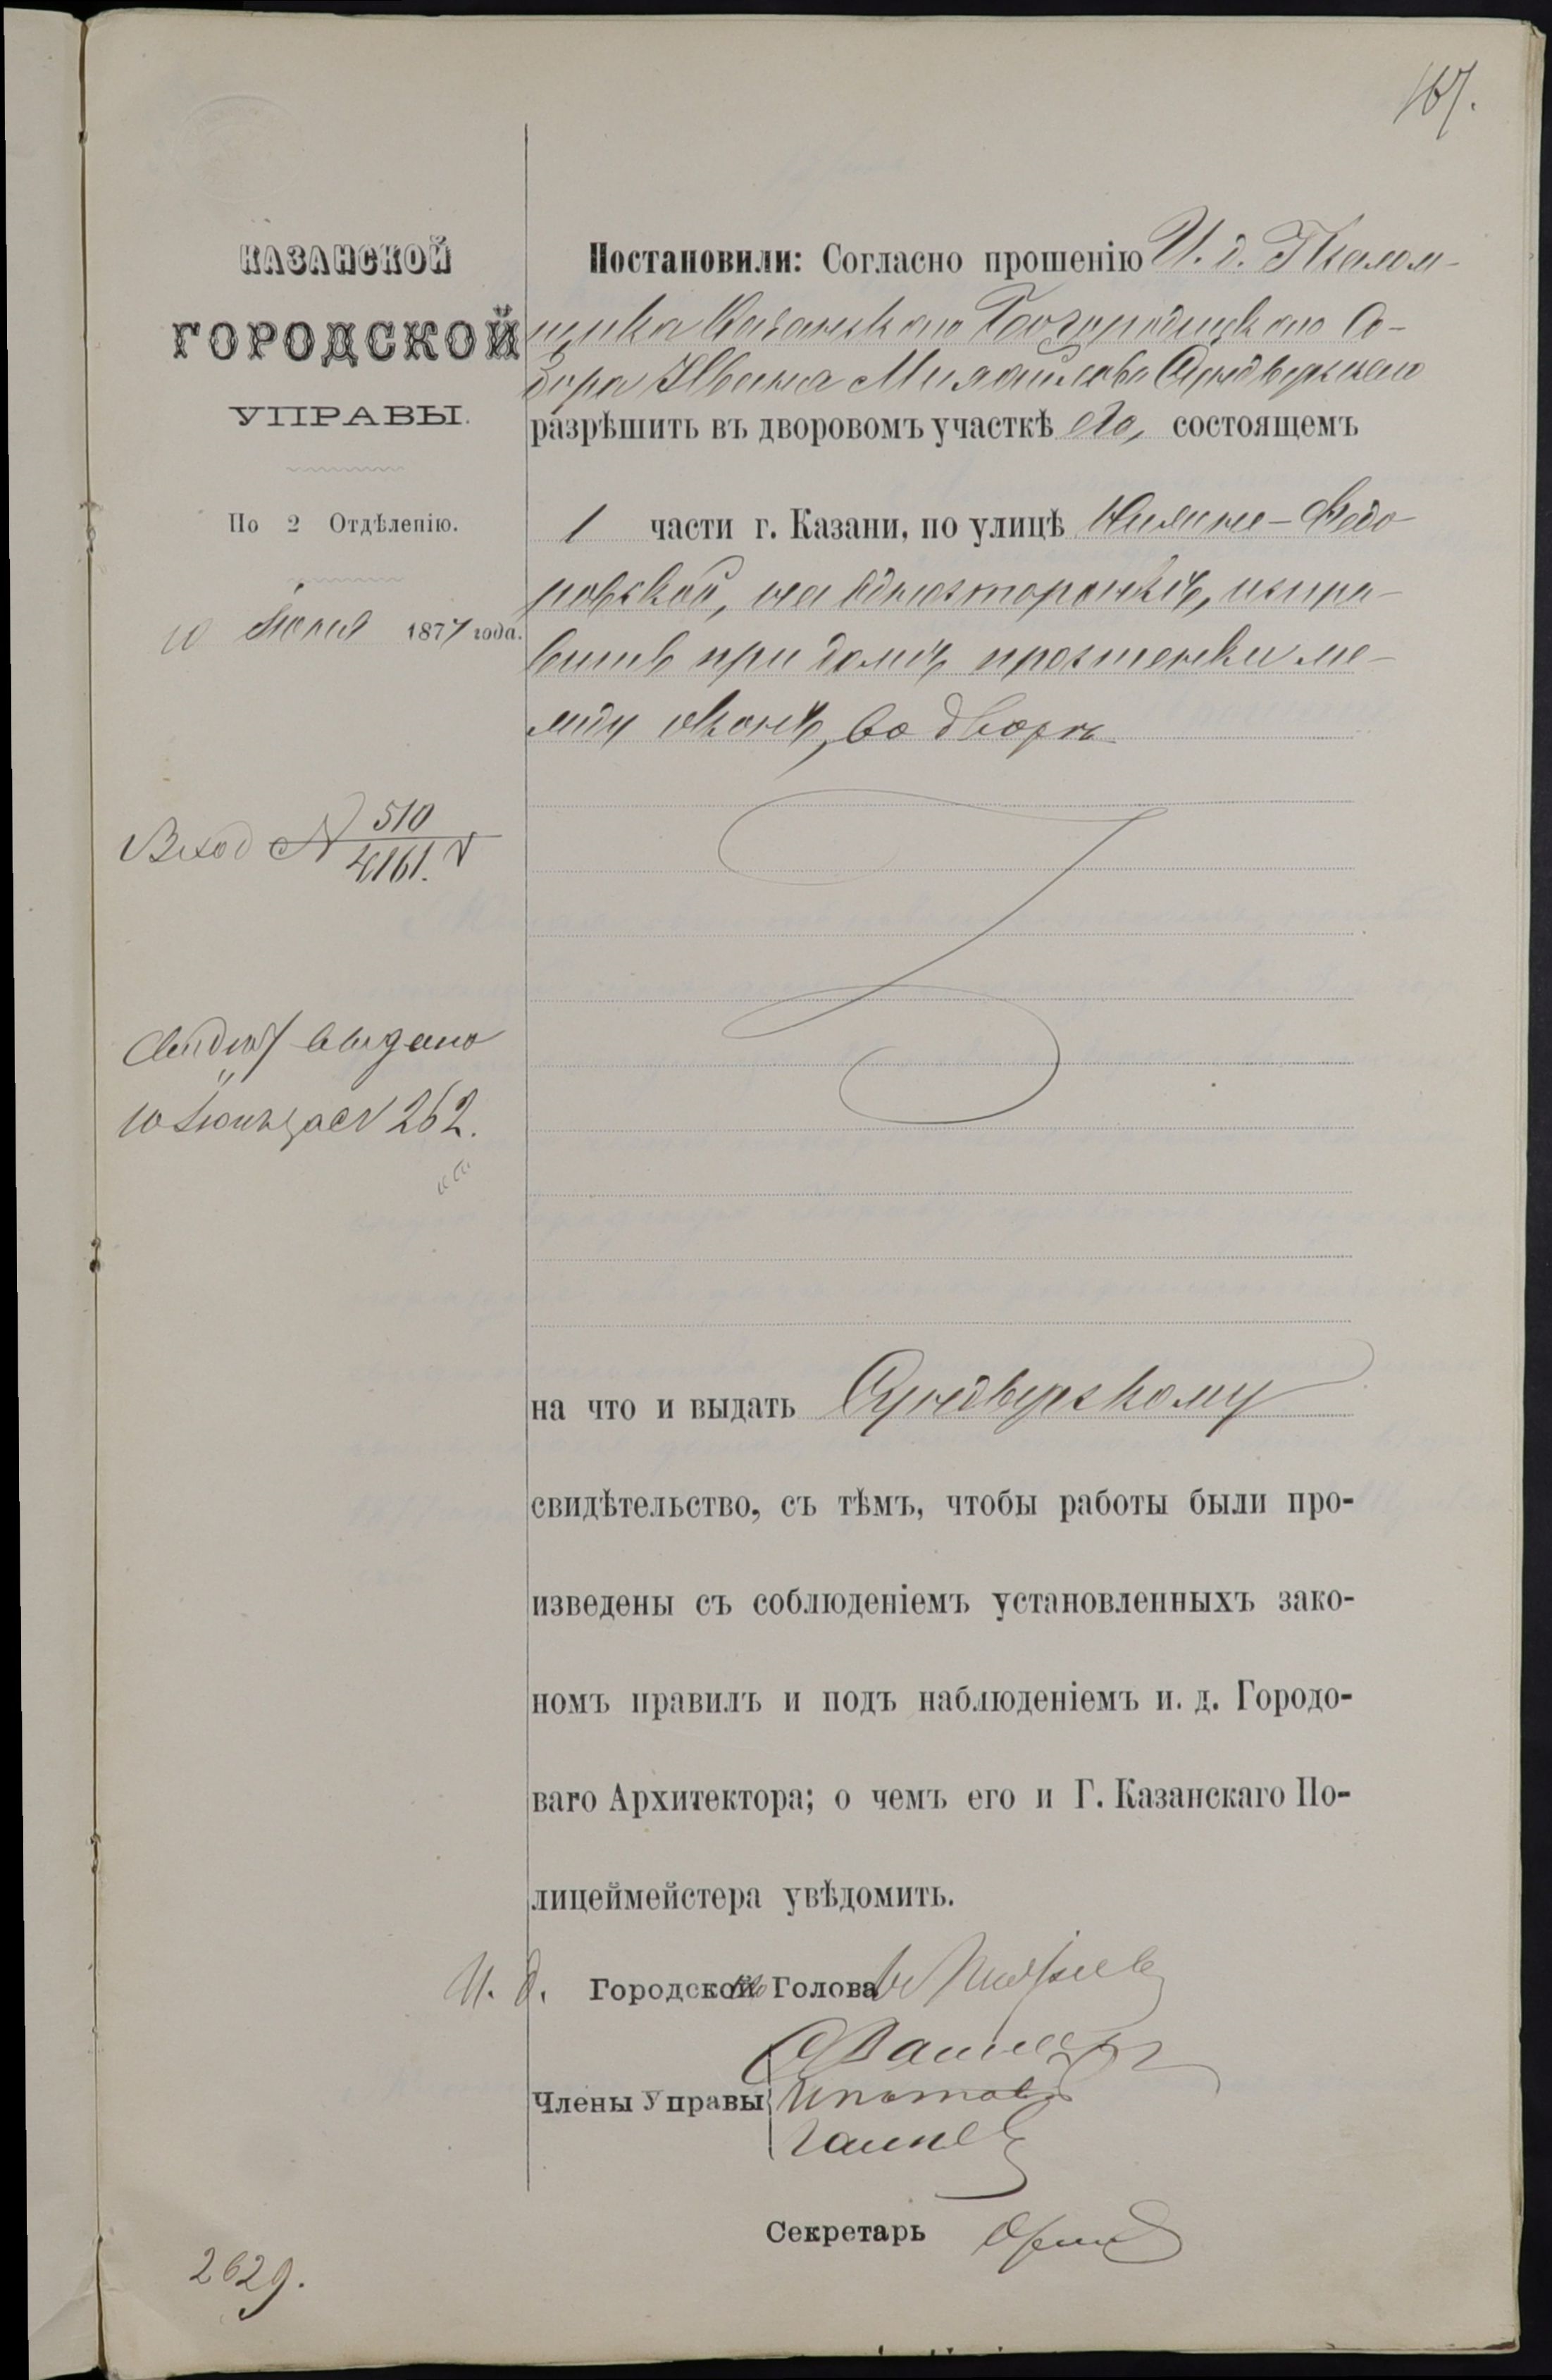 167.
КАЗАНСКОЙ
ГОРОДСКОЙ
УПРАВЫ.
По 2 Отдѣленію.
10 Іюня 1877 года.
Вход № 510
4161.
выдано
10 Іюня за № 262.
2629.
Постановили: Согласно прошенію И. д. Псалом-
щика Казанскаго Богородицкаго Со-
бора Ивана Михайлова
разрѣшить въ дворовомъ участкѣ его, состоящемъ
1 части г. Казани, по улицѣ Нижне-Федо-
ровской, на исправить
при домѣ простенки ме-
жду оконъ, во дворѣ
на что и выдать
свидѣтельство, съ тѣмъ, чтобы работы были про-
изведены съ соблюденіемъ установленныхъ зако-
номъ правилъ и подъ наблюденіемъ и. д. Городо-
ваго Архитектора; о чемъ его и Г. Казанскаго По-
лицеймейстера увѣдомить.
И. д. Городской Голова
Члены Управы
Секретарь